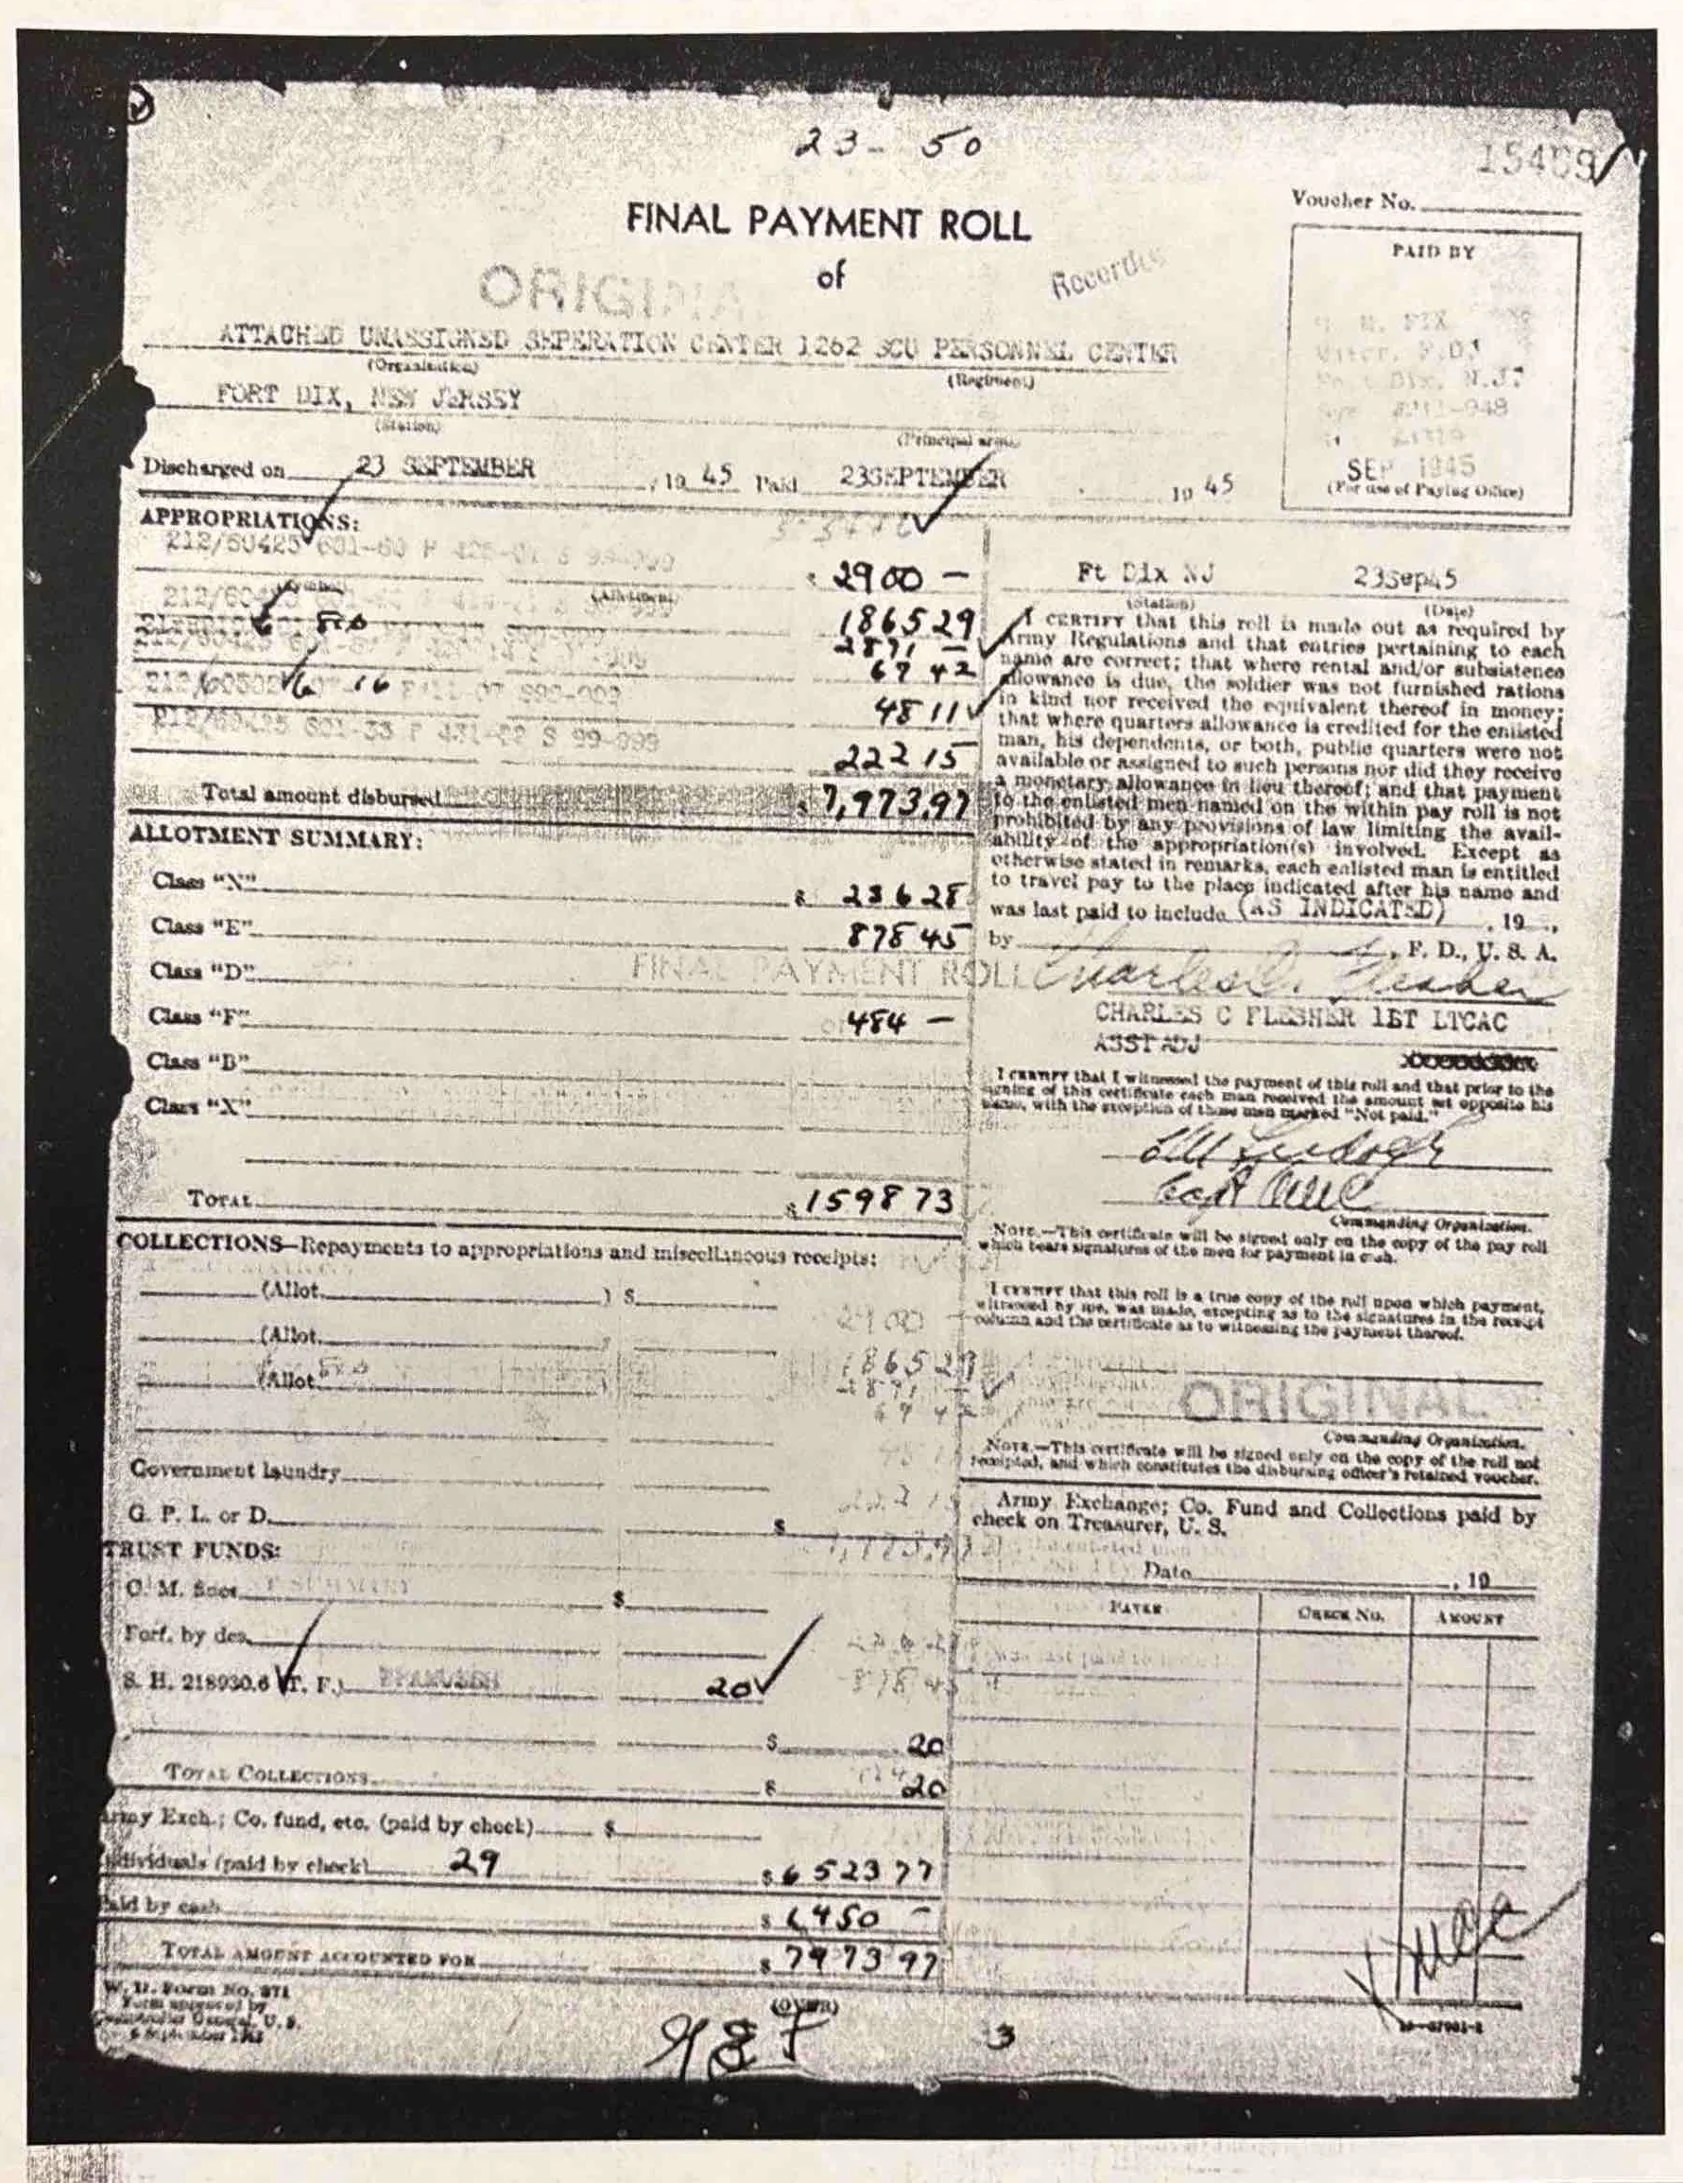 23- 50
15409
FINAL PAYMENT ROLL
of
Voucher No.
PAID BY
ORIGINA
Recorded
ATTACHED UNASSIGNED SEPERATION CENTER 1262 SCU PERSONNEL CENTER
(Organization)
(Regiment)
FORT DIX, NEW JERSEY
(Station)
(Principal arm)
SEP 1945
(For use of Paying Office)
Discharged on 23 SEPTEMBER , 19 45 Paid 23SEPTEMBER 19 45
APPROPRIATIONS:
$ 2900 —
(Symbol)
(Allotment)
1865 29
2871 —
67 42
48 11
222 15
Total amount disbursed $ 7,973.97
ALLOTMENT SUMMARY:
Class "N" $ 236 28
Class "E" 878 45
Class "D"
FINAL PAYMENT ROLL
Class "F" 484 —
Class "B"
Class "X"
TOTAL $ 1598 73
COLLECTIONS—Repayments to appropriations and miscellaneous receipts:
(Allot. ) $
(Allot. )
(Allot. )
Government laundry
G. P. L. or D. $
TRUST FUNDS:
$
Forf. by des.
S. H. 218930.6 (T. F.) 20
$ 20
TOTAL COLLECTIONS $ 20
Army Exch.; Co. fund, etc. (paid by check) $
Individuals (paid by check) 29 $ 6523 77
Paid by cash $ 1450 —
TOTAL AMOUNT ACCOUNTED FOR $ 7973 97
W. D. Form No. 371
Form approved by
Comptroller General, U. S.
(OVER)
3
Ft Dix NJ 23Sep45
(Station) (Date)
I CERTIFY that this roll is made out as required by
Army Regulations and that entries pertaining to each
name are correct; that where rental and/or subsistence
allowance is due, the soldier was not furnished rations
in kind nor received the equivalent thereof in money;
that where quarters allowance is credited for the enlisted
man, his dependents, or both, public quarters were not
available or assigned to such persons nor did they receive
a monetary allowance in lieu thereof; and that payment
to the enlisted men named on the within pay roll is not
prohibited by any provisions of law limiting the avail-
ability of the appropriation(s) involved. Except as
otherwise stated in remarks, each enlisted man is entitled
to travel pay to the place indicated after his name and
was last paid to include (AS INDICATED) , 19 ,
by , F. D., U. S. A.
Charles C. Flesher
CHARLES C FLESHER 1ST LTCAC
ASST ADJ
I CERTIFY that I witnessed the payment of this roll and that prior to the
signing of this certificate each man received the amount set opposite his
name, with the exception of those men marked "Not paid."
Commanding Organization.
NOTE.—This certificate will be signed only on the copy of the pay roll
which bears signatures of the men for payment in cash.
I CERTIFY that this roll is a true copy of the roll upon which payment,
witnessed by me, was made, excepting as to the signatures in the receipt
column and the certificate as to witnessing the payment thereof.
ORIGINAL
Commanding Organization.
NOTE.—This certificate will be signed only on the copy of the roll not
receipted, and which constitutes the disbursing officer's retained voucher.
Army Exchange; Co. Fund and Collections paid by
check on Treasurer, U. S.
Date , 19
PAYEE CHECK NO. AMOUNT